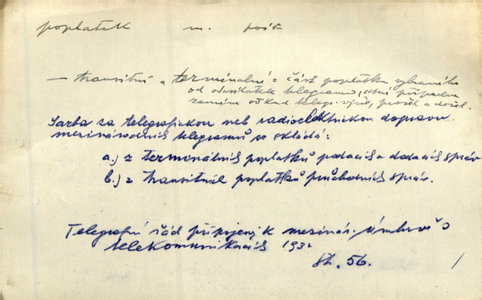 poplatek m. pošt
— transitní a terminální = část poplatku vybraného
od odesílatele telegramu, která připadne
zemím odkud telegr. vyšel, prošel a došel.
Sazba za telegrafickou neb radioelektrickou dopravu
mezinárodních telegramů se skládá:
a.) z terminálních poplatků podacích a dodacích správ
b.) z transitních poplatků průchodních správ.
Telegrafní řád připojený k mezinár. úmluvě o
telekomunikacích 1932
str. 56.